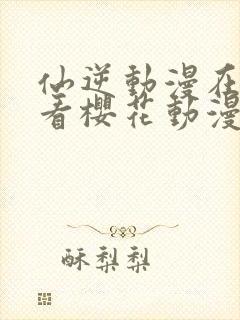 仙逆動漫在
看櫻花動漫
酥梨梨